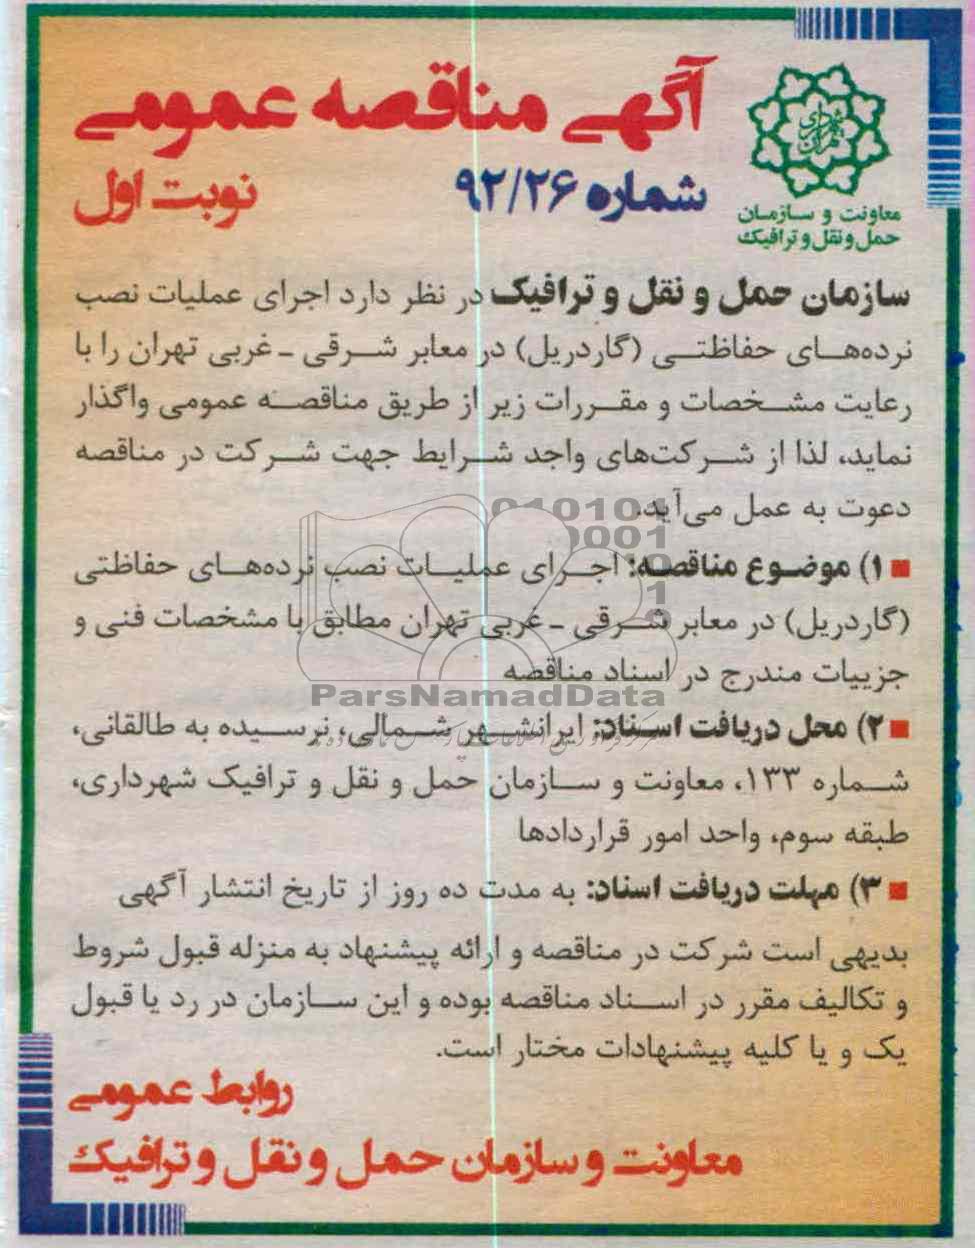 شهرداری تهران
معاونت و سازمان
حمل و نقل و ترافیک
آگهی مناقصه عمومی
شماره ۹۲/۲۶
نوبت اول
سازمان حمل و نقل و ترافیک در نظر دارد اجرای عملیات نصب
نرده‌های حفاظتی (گاردریل) در معابر شرقی ـ غربی تهران را با
رعایت مشخصات و مقررات زیر از طریق مناقصه عمومی واگذار
نماید، لذا از شرکت‌های واجد شرایط جهت شرکت در مناقصه
دعوت به عمل می‌آید.
۱) موضوع مناقصه: اجرای عملیات نصب نرده‌های حفاظتی
(گاردریل) در معابر شرقی ـ غربی تهران مطابق با مشخصات فنی و
جزییات مندرج در اسناد مناقصه
ParsNamadData
۲) محل دریافت اسناد: ایرانشهر شمالی، نرسیده به طالقانی،
شماره ۱۳۳، معاونت و سازمان حمل و نقل و ترافیک شهرداری،
طبقه سوم، واحد امور قراردادها
۳) مهلت دریافت اسناد: به مدت ده روز از تاریخ انتشار آگهی
بدیهی است شرکت در مناقصه و ارائه پیشنهاد به منزله قبول شروط
و تکالیف مقرر در اسناد مناقصه بوده و این سازمان در رد یا قبول
یک و یا کلیه پیشنهادات مختار است.
روابط عمومی
معاونت و سازمان حمل و نقل و ترافیک